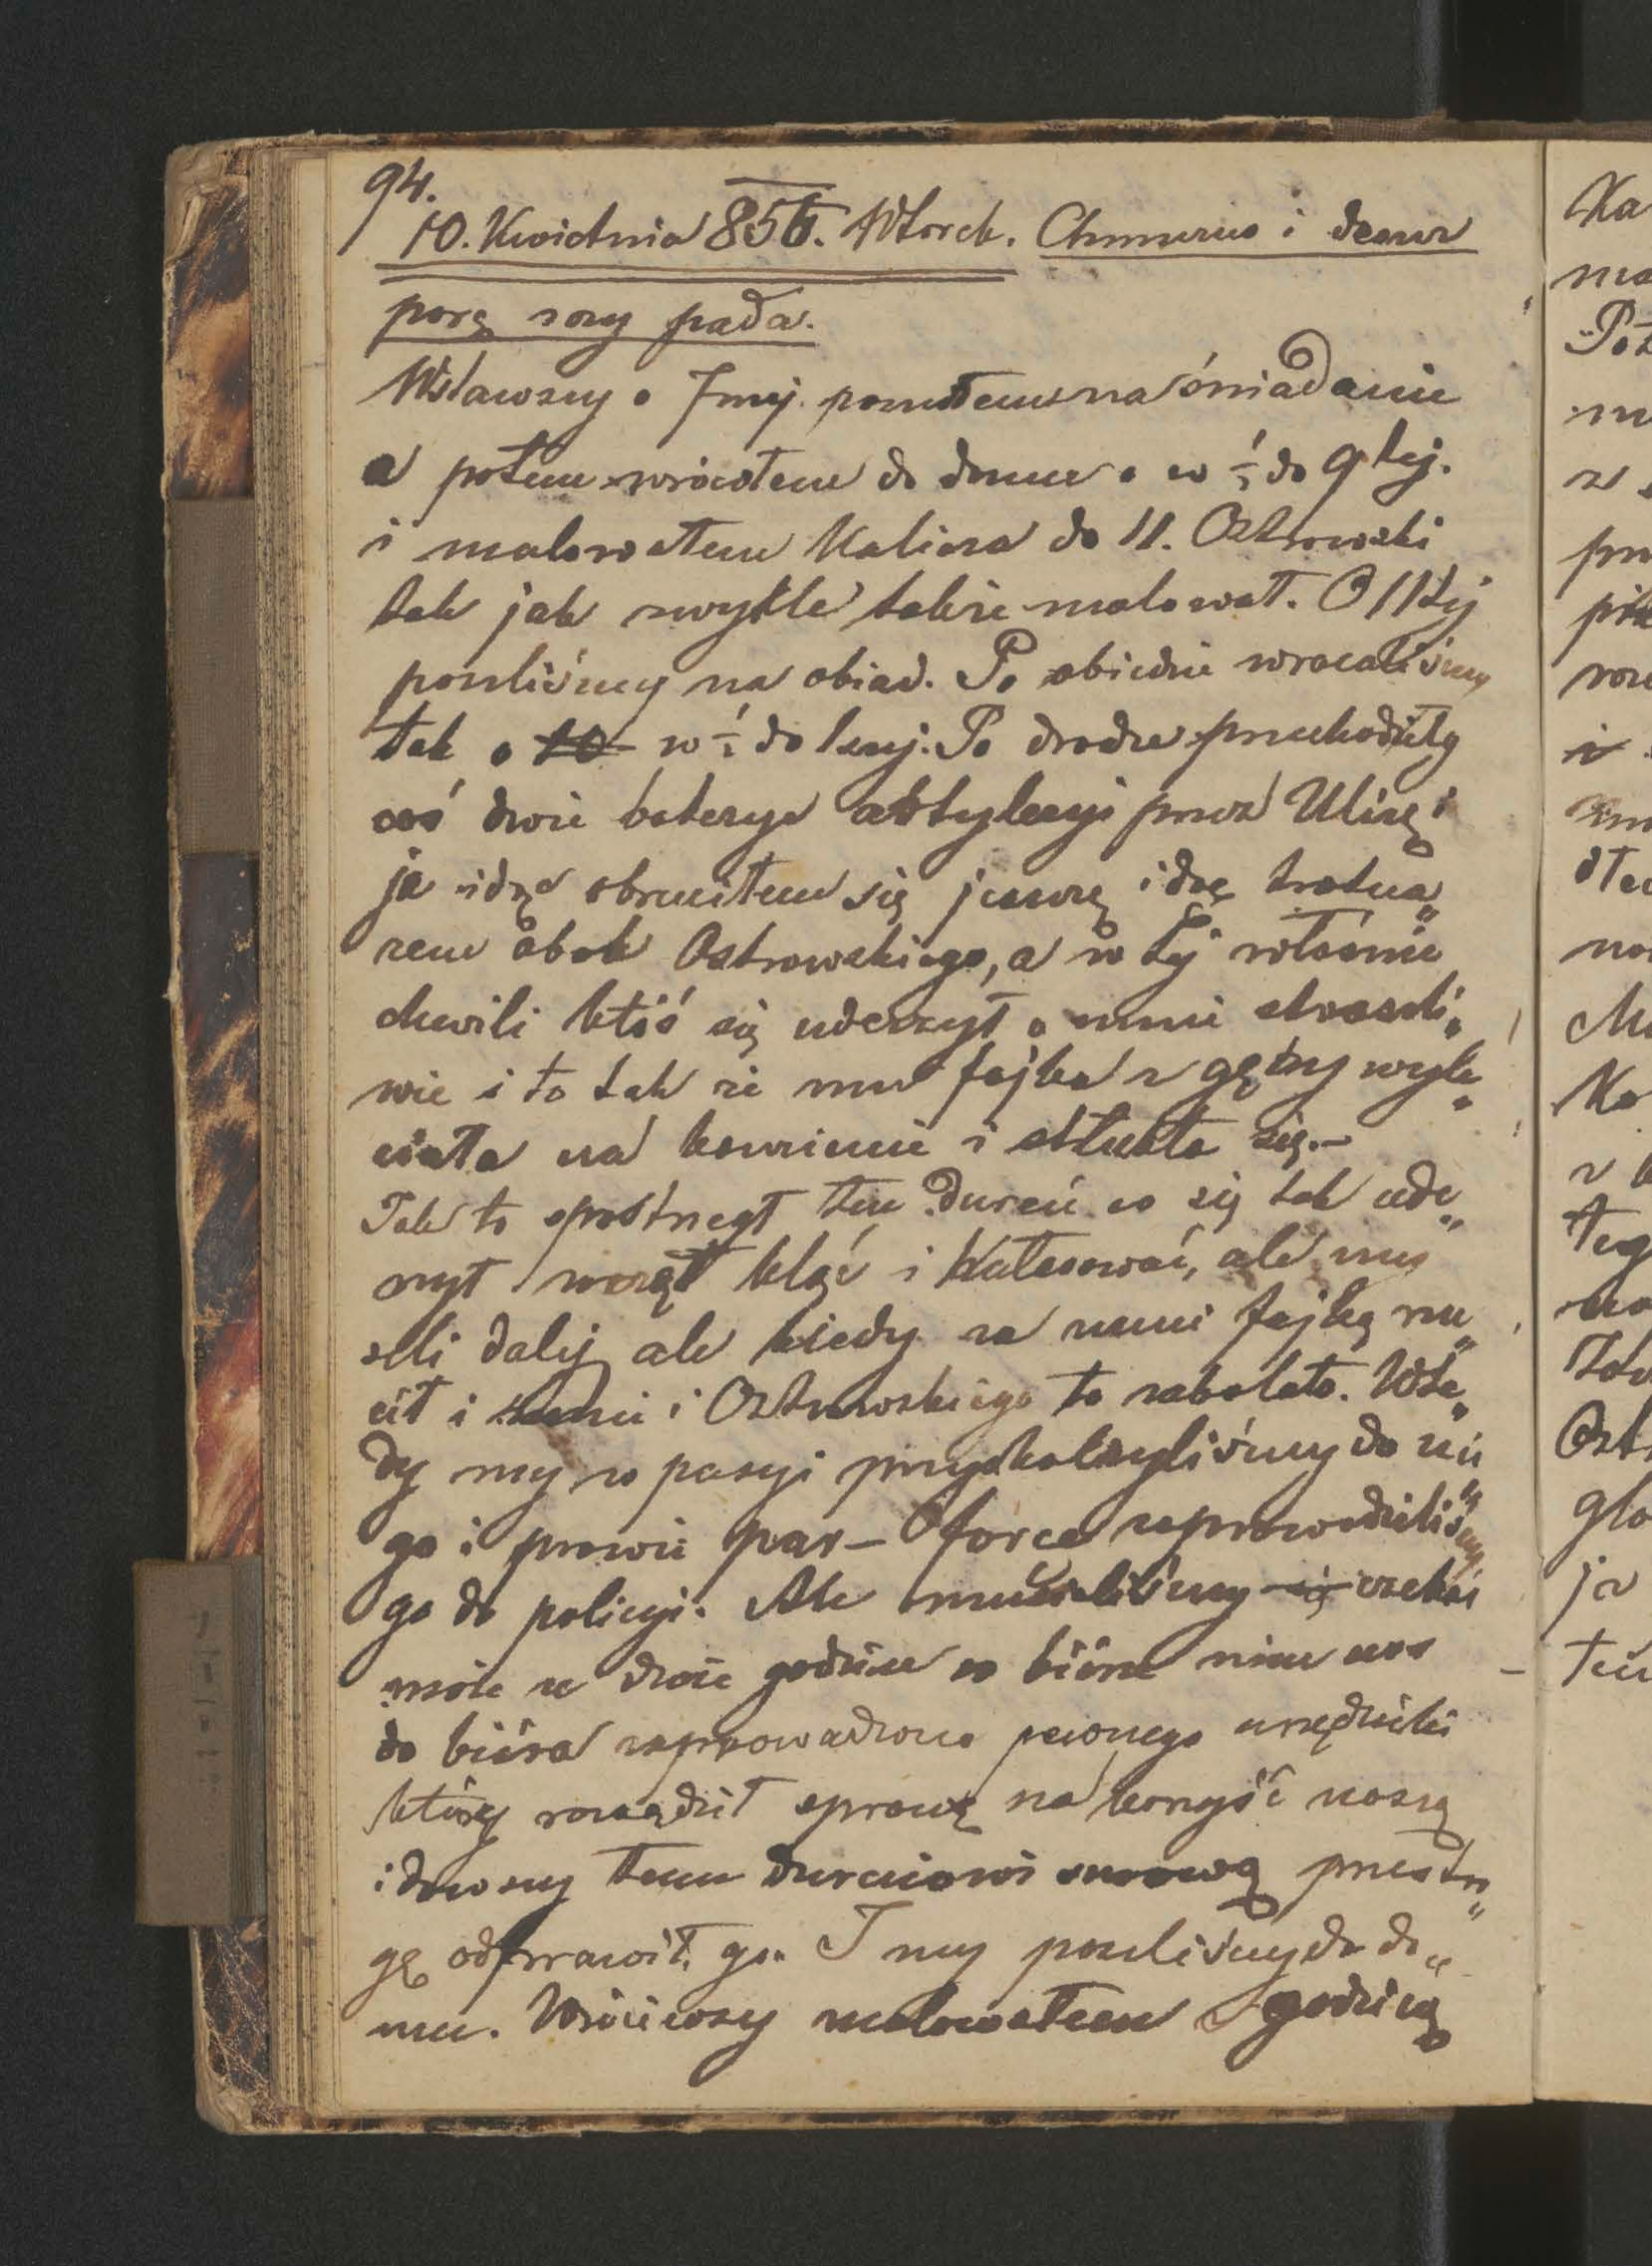 94.
10. Kwietnia 855. Wtorek. Chmurno i deszcz
parę razy pada.
Wstawszy o 7mej poszedłem na śniadanie
a potem wróciłem do domu o w ½ do 9tej.
i malowałem Kaliosa do 11. Ostrowski
tak jak zwykle także malował. O 11tej
poszliśmy na obiad. Po obiedzie wracaliśmy
tak o w ½ do 1szej. Po drodze przechodziły
coś dwie baterye artyleryi przez Ulicę i
ja idąc obruciłem się jeszcze idąc trotua„
rem obok Ostrowskiego, a w tej właśnie
chwili ktoś się uderzył o mnie straszli„
wie i to tak że mu fajka z gęby wyle„
ciała na kamienie i stłukła się.—
Jak to spostrzegł ten dureń co się tak ude„
rzył wziął kląć i hałasować, ale my
szli dalej ale kiedy za nami fajką rzu„
cił i mnie i Ostrowskiego to zabolało. Wte„
dy my w pasyi przyskoczyliśmy do nie
go i prawie par-force zaprowadziliśmy
go do policyi. Ale musieliśmy czekać
może ze dwie godzin w biórze nim nas
do bióra zaprowadzono pewnego urzędnika
który rozsądził sprawę na korzyść naszą
i dawszy temu durniowi surową przestro„
gę odprawił go. I my poszliśmy do do„
mu. Wróciwszy malowałem godzinę